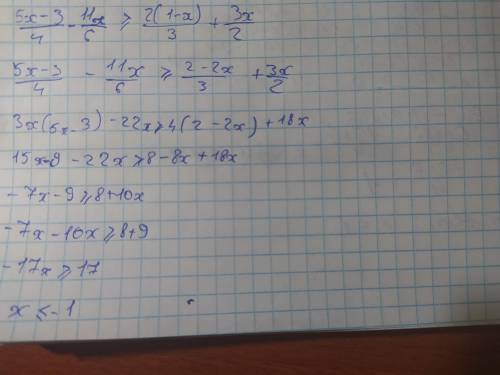 (5x-3)/4 - 11x/6 ⩾ 2(1-x)/3 + 3x/2
(5x-3)/4 - 11x/6 ⩾ (2-2x)/3 + 3x/2
3x(5x-3) - 22x ⩾ 4(2-2x) + 18x
15x-9 - 22x ⩾ 8 - 8x + 18x
-7x - 9 ⩾ 8+10x
-7x - 10x ⩾ 8+9
-17x ⩾ 17
x ⩽ -1